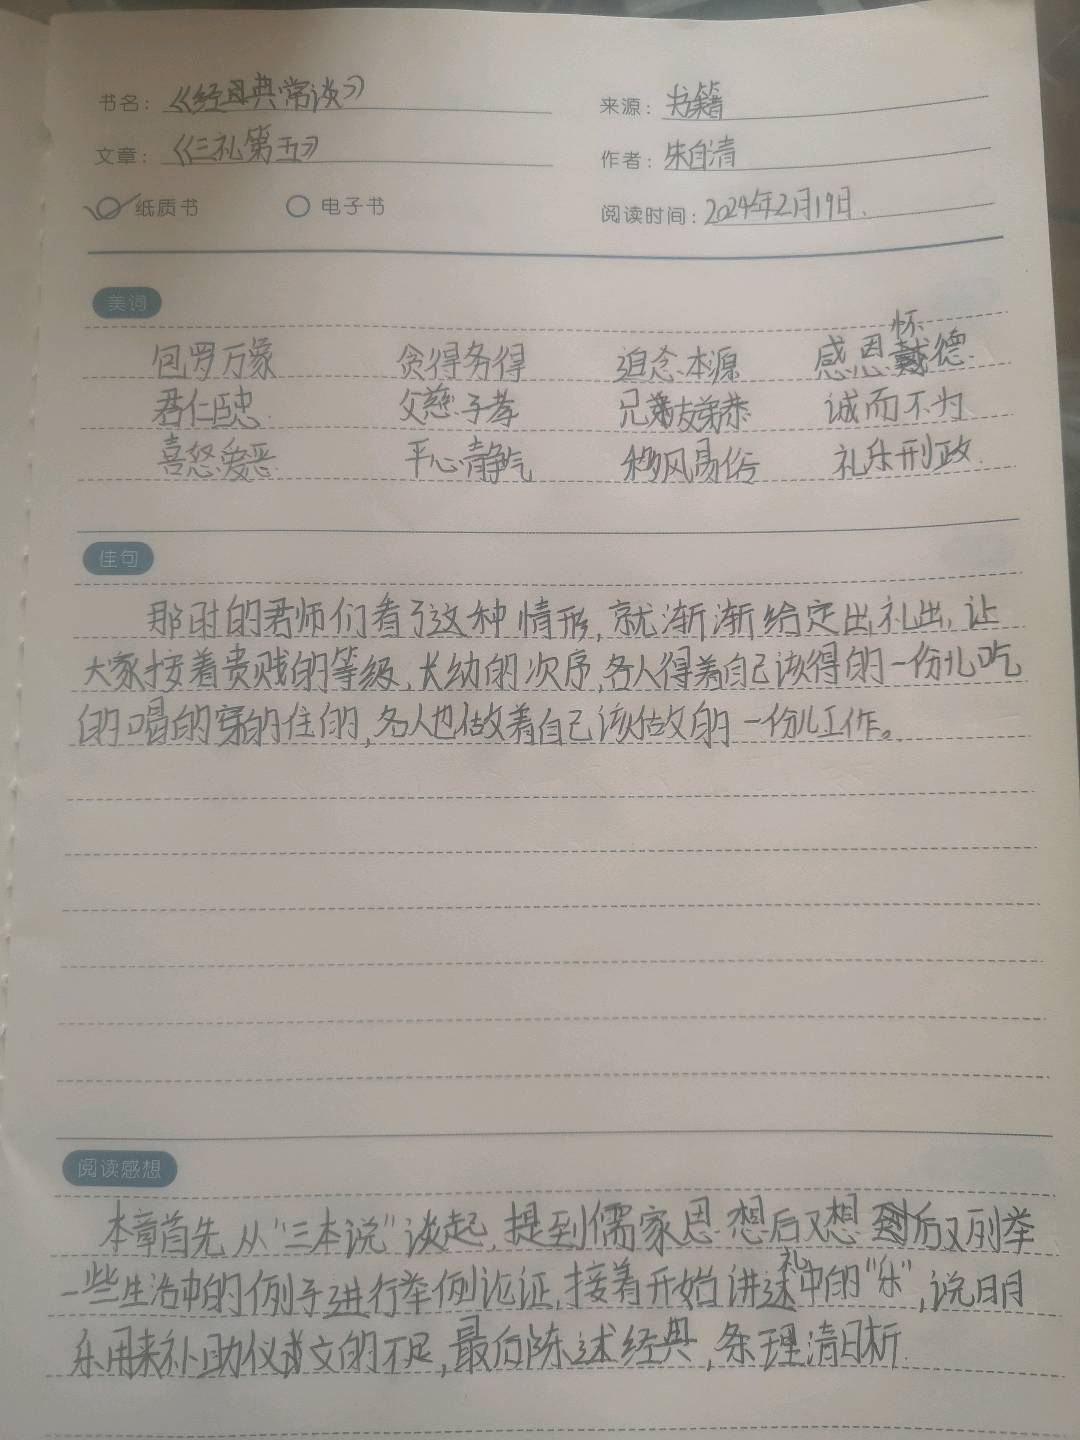 书名：《经典常谈》
来源：书籍
文章：《三礼第五》
作者：朱自清
纸质书 电子书
阅读时间：2024年2月19日.
美词
包罗万象 贪得务得 追念本源 感恩怀德
君仁臣忠 父慈子孝 兄友弟恭 诚而不为
喜怒爱恶 平心静气 移风易俗 礼乐刑政
佳句
那时的君师们看了这种情形,就渐渐给定出礼出,让
大家按着贵贱的等级,长幼的次序,各人得着自己该得的一份儿吃
的喝的穿的住的,各人也做着自己该做的一份儿工作。
阅读感想
本章首先从“三本说”谈起,提到儒家思想后又想到后又列举
一些生活中的例子进行举例论证,接着开始讲述礼中的“乐”,说明
乐用来补助仪文的不足,最后陈述经典,条理清晰.